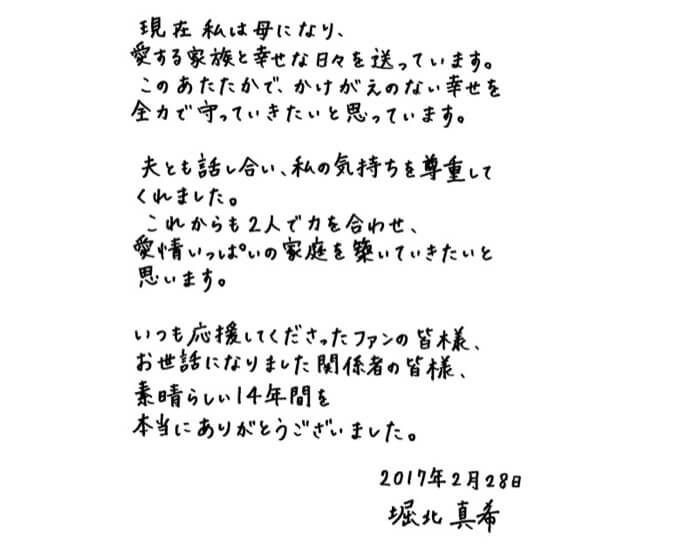 現在 私は母になり、
愛する家族と幸せな日々を送っています。
このあたたかで、かけがえのない幸せを
全力で守っていきたいと思っています。
夫とも話し合い、私の気持ちを尊重して
くれました。
これからも2人で力を合わせ、
愛情いっぱいの家庭を築いていきたいと
思います。
いつも応援してくださったファンの皆様、
お世話になりました関係者の皆様、
素晴らしい14年間を
本当にありがとうございました。
2017年2月28日
堀北真希